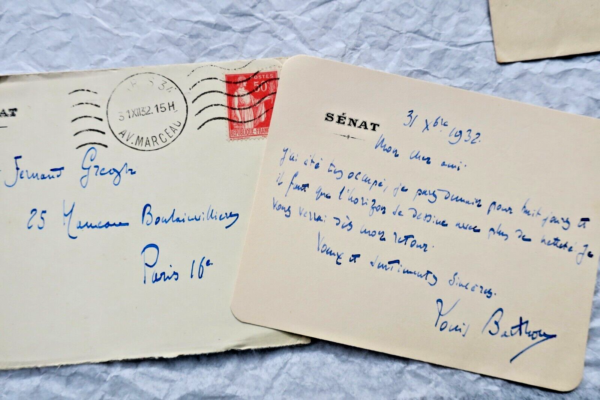 AT
31 XII 32. 15 H
AV. MARCEAU
POSTES
50c
Fernand Gregh
25 Hameau Boulainvilliers
Paris 16e
SÉNAT
31 Xbre 1932.
Mon cher ami.
J'ai été très occupé, je pars demain pour huit jours et
il faut que l'horizon se dessine avec plus de netteté. Je
vous verrai dès mon retour.
Vœux et sentiments sincères.
Louis Barthou